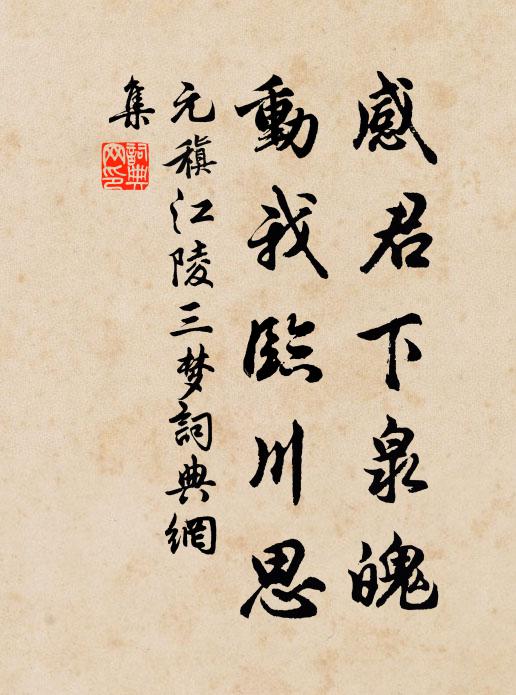 感君下泉魄
動我臨川思
元稹江陵三梦詞典網
集
詞典
网印